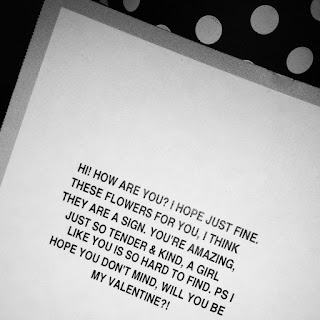 HI! HOW ARE YOU? I HOPE JUST FINE.
THESE FLOWERS FOR YOU, I THINK
THEY ARE A SIGN. YOU'RE AMAZING,
JUST SO TENDER & KIND, A GIRL
LIKE YOU IS SO HARD TO FIND. PS I
HOPE YOU DON'T MIND, WILL YOU BE
MY VALENTINE?!